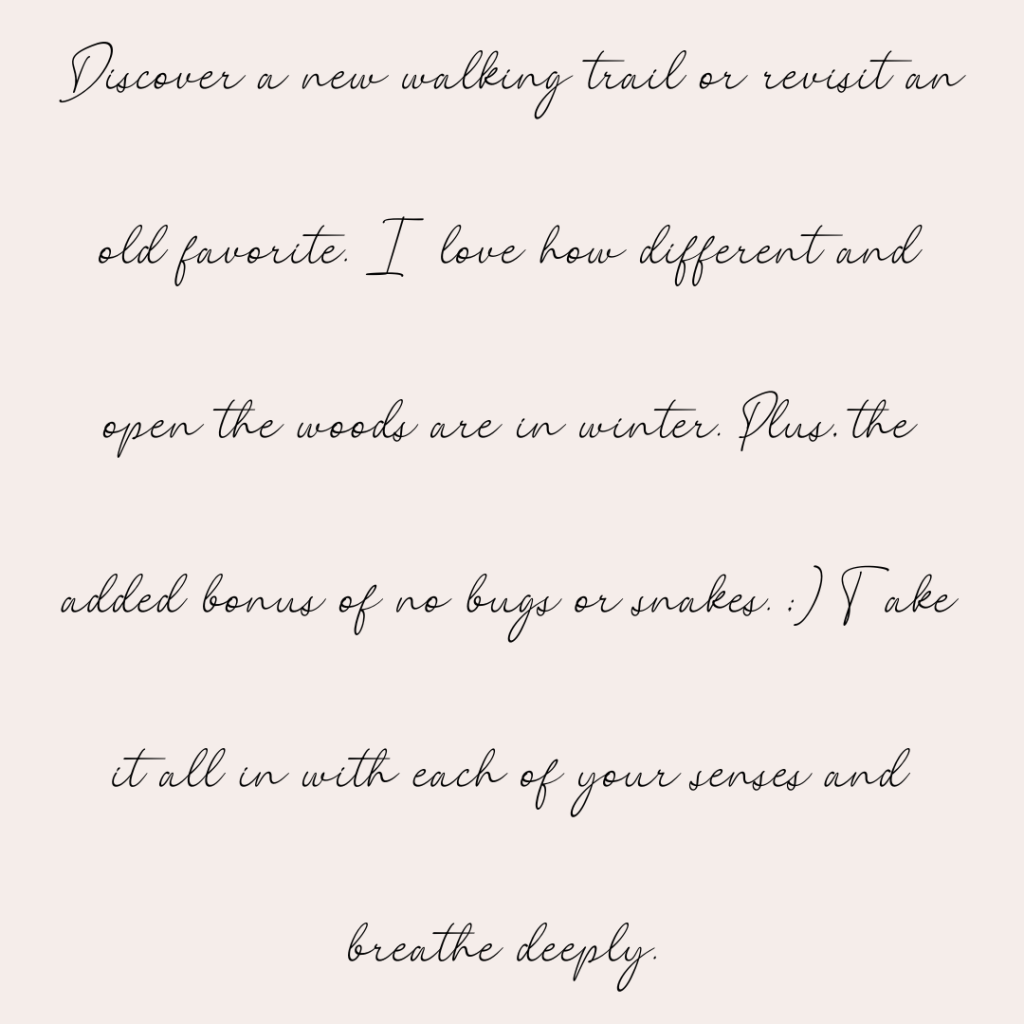 Discover a new walking trail or revisit an
old favorite. I love how different and
open the woods are in winter. Plus, the
added bonus of no bugs or snakes. :) Take
it all in with each of your senses and
breathe deeply.